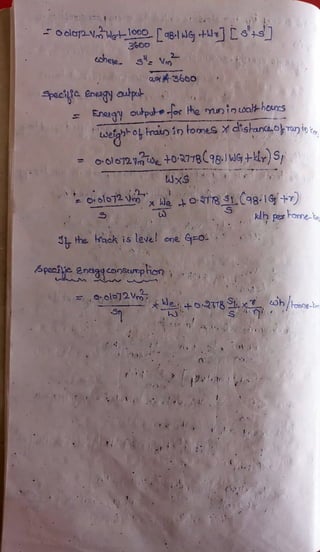 = 0.01072 Vm² We + 1000/3600 [98.1 WG + Wr] [S" + S']
where S" = Vm²
/3600
Specific Energy output
= Energy output for the run in watt-hours
weight of train in tonnes × distance of run in km
= 0.01072 Vm² We + 0.2778 (98.1 WG + Wr) S1
W×S
= 0.01072 Vm²/S × We/W + 0.2778 S1/S (98.1 G + r)
Wh per tonne-
If the track is level one G=0.
Specific Energy consumption
= 0.01072 Vm²/Sη × We/W + 0.2778 S1/S × r/η wh/tonne-